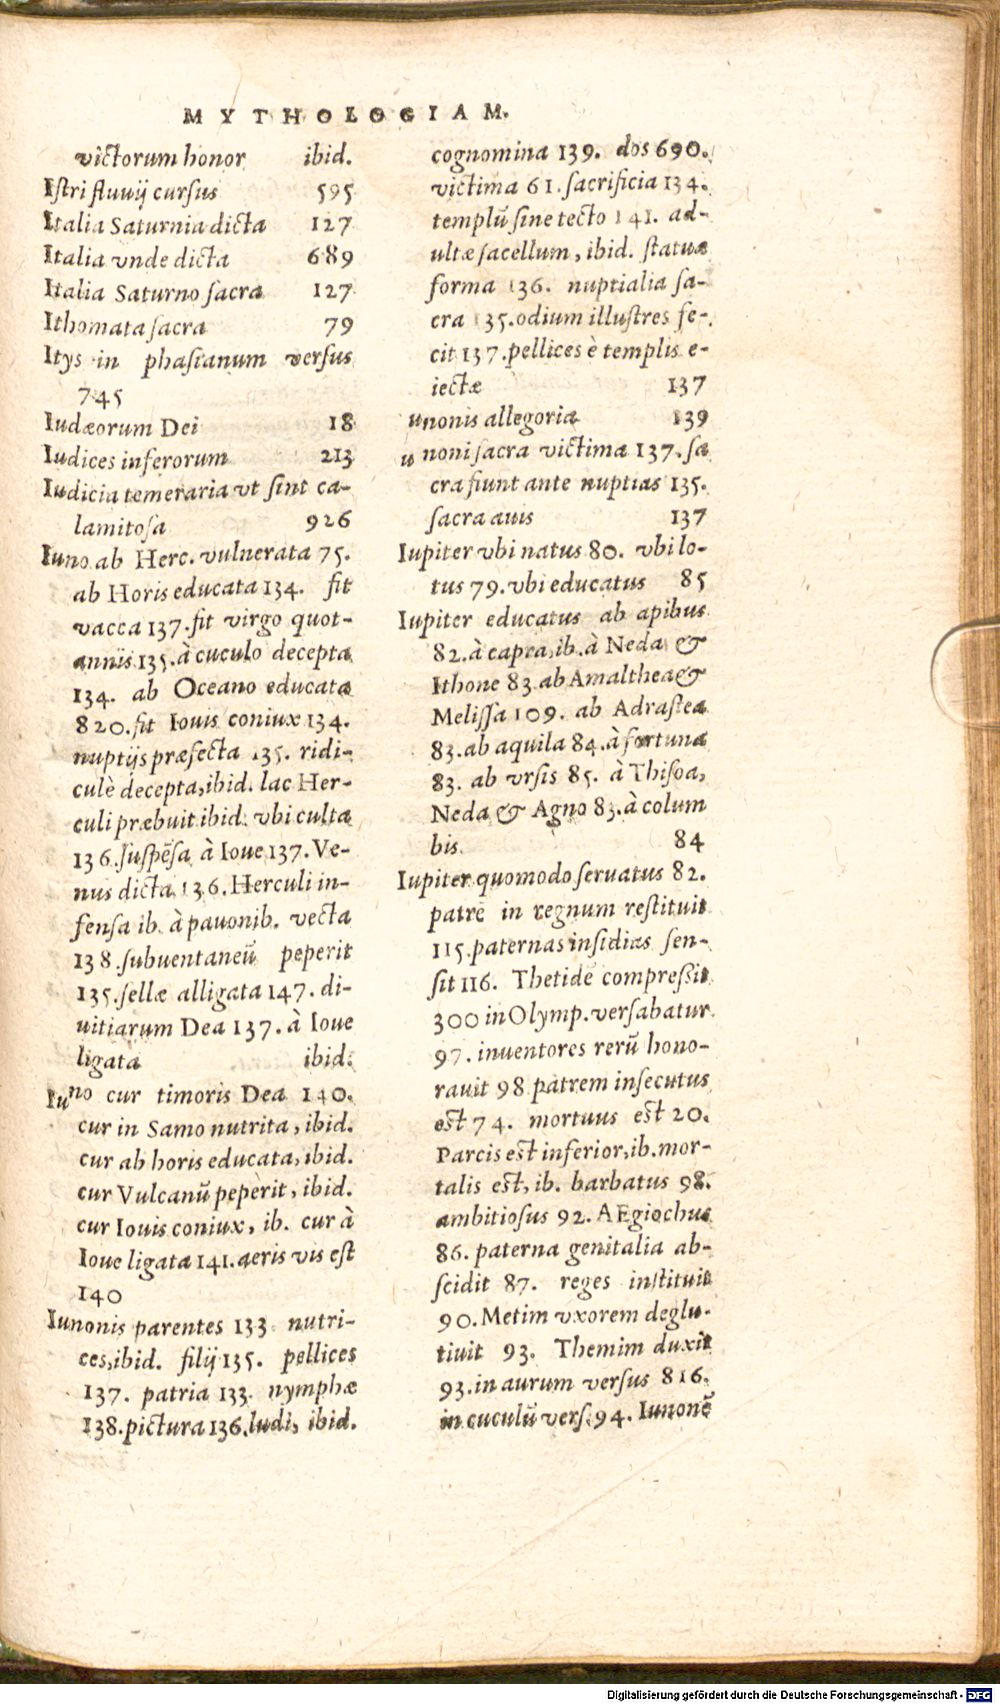 MYTHOLOGIAM.
victorum honor ibid.
Istri fluvij cursus 595
Italia Saturnia dicta 127
Italia vnde dicta 689
Italia Saturno sacra 127
Ithomata sacra 79
Itys in phasianum versus
745
Iudæorum Dei 18
Iudices inferorum 213
Iudicia temeraria vt sint ca-
lamitosa 926
Iuno ab Herc. vulnerata 75.
ab Horis educata 134. fit
vacca 137. fit virgo quot-
annis 135. à cuculo decepta
134. ab Oceano educata
820. fit Iouis coniux 134.
nuptijs præfecta 135. ridi-
culè decepta, ibid. lac Her-
culi præbuit ibid. vbi culta
136. suspēsa à Ioue 137. Ve-
nus dicta 136. Herculi in-
fensa ib. à pauonib. vecta
138. subuentaneū peperit
135. sellæ alligata 147. di-
uitiarum Dea 137. à Ioue
ligata ibid.
Iuno cur timoris Dea 140.
cur in Samo nutrita, ibid.
cur ab horis educata, ibid.
cur Vulcanū pepèrit, ibid.
cur Iouis coniux, ib. cur à
Ioue ligata 141. aeris vis est
140
Iunonis parentes 133 nutri-
ces, ibid. filij 135. pellices
137. patria 133. nymphæ
138. pictura 136. ludi, ibid.
cognomina 139. dos 690.
victima 61. sacrificia 134.
templū sine tecto 141. ad-
ultæ sacellum, ibid. statuæ
forma 136. nuptialia sa-
cra 135. odium illustres fe-
cit 137. pellices è templis e-
iectæ 137
unonis allegoria 139
unoni sacra victima 137. sa
cra fiunt ante nuptias 135.
sacra auis 137
Iupiter vbi natus 80. vbi lo-
tus 79. vbi educatus 85
Iupiter educatus ab apibus
82. à capra, ib. à Neda &
Ithone 83. ab Amalthea &
Melissa 109. ab Adrastea
83. ab aquila 84. à fortuna
83. ab vrsis 85. à Thisoa,
Neda & Agno 83. à colum
bis 84
Iupiter quomodo seruatus 82.
patrē in regnum restituit
115. paternas insidias sen-
sit 116. Thetidē compressit
300 in Olymp. versabatur
97. inuentores rerū hono-
rauit 98 patrem insecutus
est 74. mortuus est 20.
Parcis est inferior, ib. mor-
talis est, ib. barbatus 98.
ambitiosus 92. AEgiochus
86. paterna genitalia ab-
scidit 87. reges instituit
90. Metim vxorem deglu-
tiuit 93. Themim duxit
93. in aurum versus 816.
in cuculū vers. 94. Iunonē
Digitalisierung gefördert durch die Deutsche Forschungsgemeinschaft - DFG